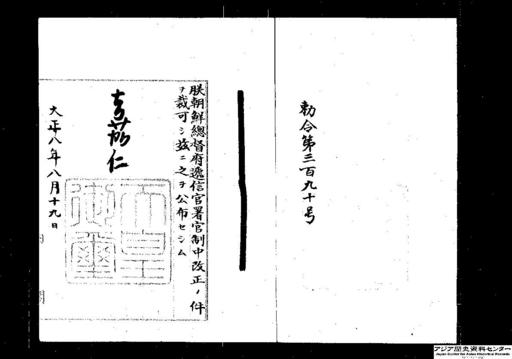 勅令第三百九十号
朕朝鮮總督府遞信官署官制中改正ノ件
ヲ裁可シ茲ニ之ヲ公布セシム
嘉仁
天皇
御璽
大正八年八月十九日
アジア歴史資料センター
Japan Center for Asian Historical Records